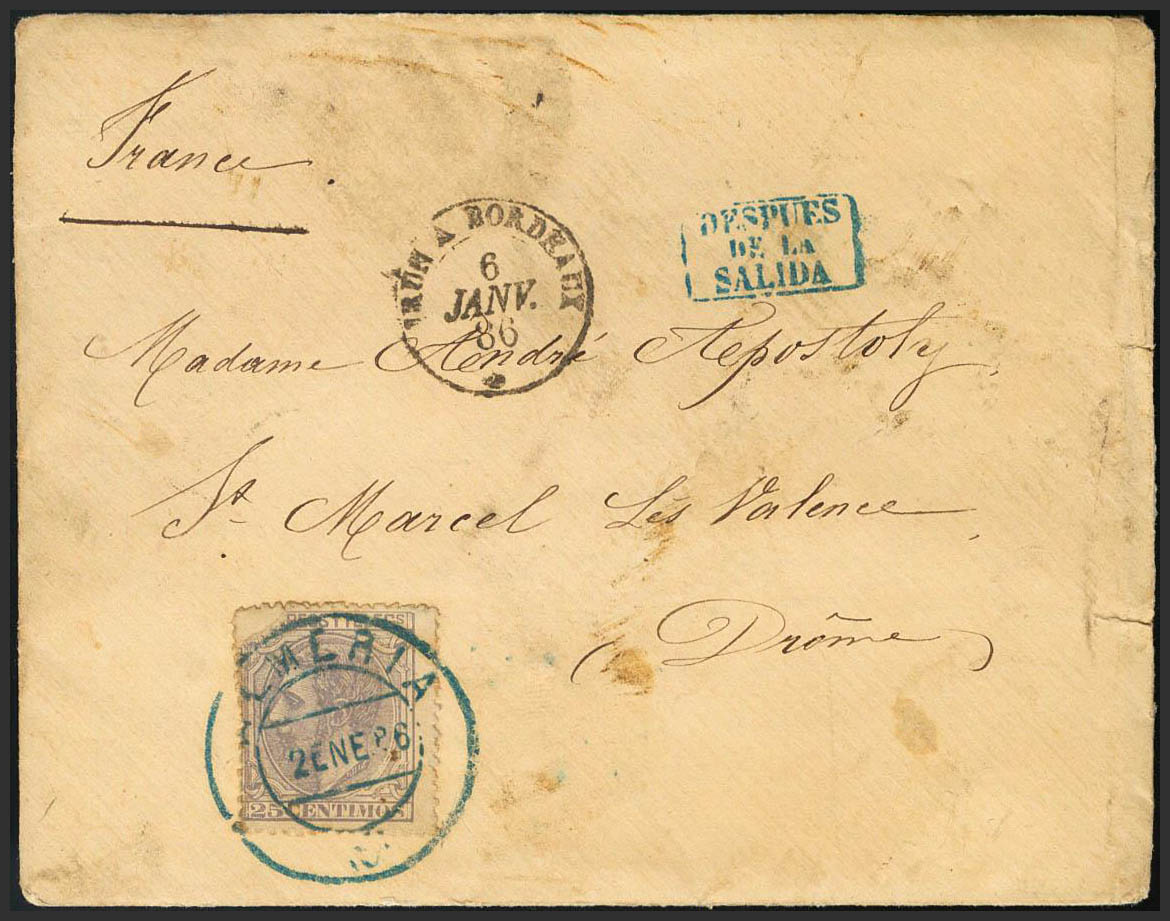 France.
IRUN A BORDEAUX
6
JANV.
86
DESPUES
DE LA
SALIDA
Madame André Apostoly,
St Marcel Lès Valence,
(Drôme)
ALMERIA
2 ENE 86
25 CENTIMOS